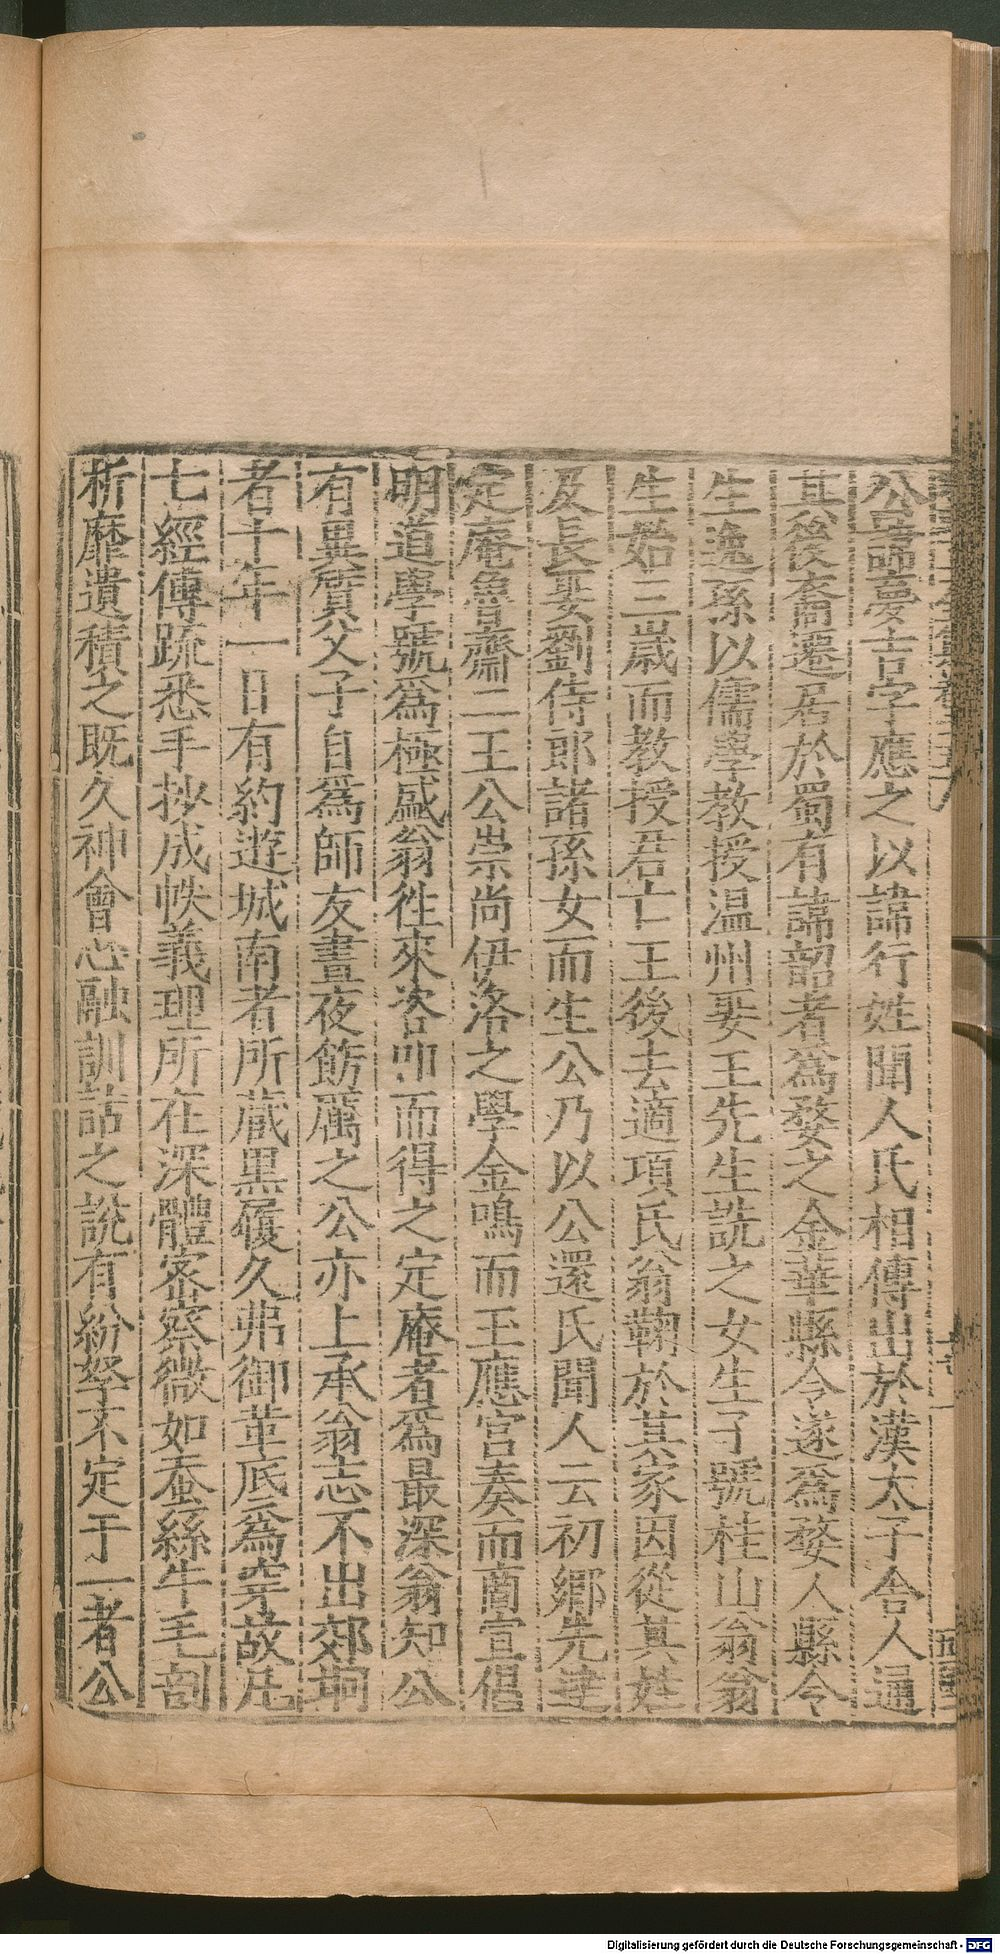 公諱夢吉字應之以諱行姓聞人氏相傳出於漢太子舍人通
其後裔遷居於蜀有諱韶者爲婺之金華縣令遂爲婺人縣令
生逸孫以儒學教授温州娶王先生詵之女生子號桂山翁翁
生始三歲而教授君亡王後去適項氏翁鞠於其家因從其姓
及長娶劉侍郎諸孫女而生公乃以公還氏聞人云初鄉先達
定庵魯齋二王公崇尚伊洛之學金鳴而玉應宮奏而商宣倡
明道學號爲極盛翁徃來咨叩而得之定庵者爲最深翁知公
有異質父子自爲師友晝夜飭厲之公亦上承翁志不出郊坰
者十年一日有約遊城南者所蔵黑履久弗御革底爲穿故凡
七經傳疏悉手抄成帙義理所在深體密察微如蚕絲牛毛剖
析靡遺積之既久神會心融訓詁之說有紛拏不定于一者公
Digitalisierung gefördert durch die Deutsche Forschungsgemeinschaft - DFG